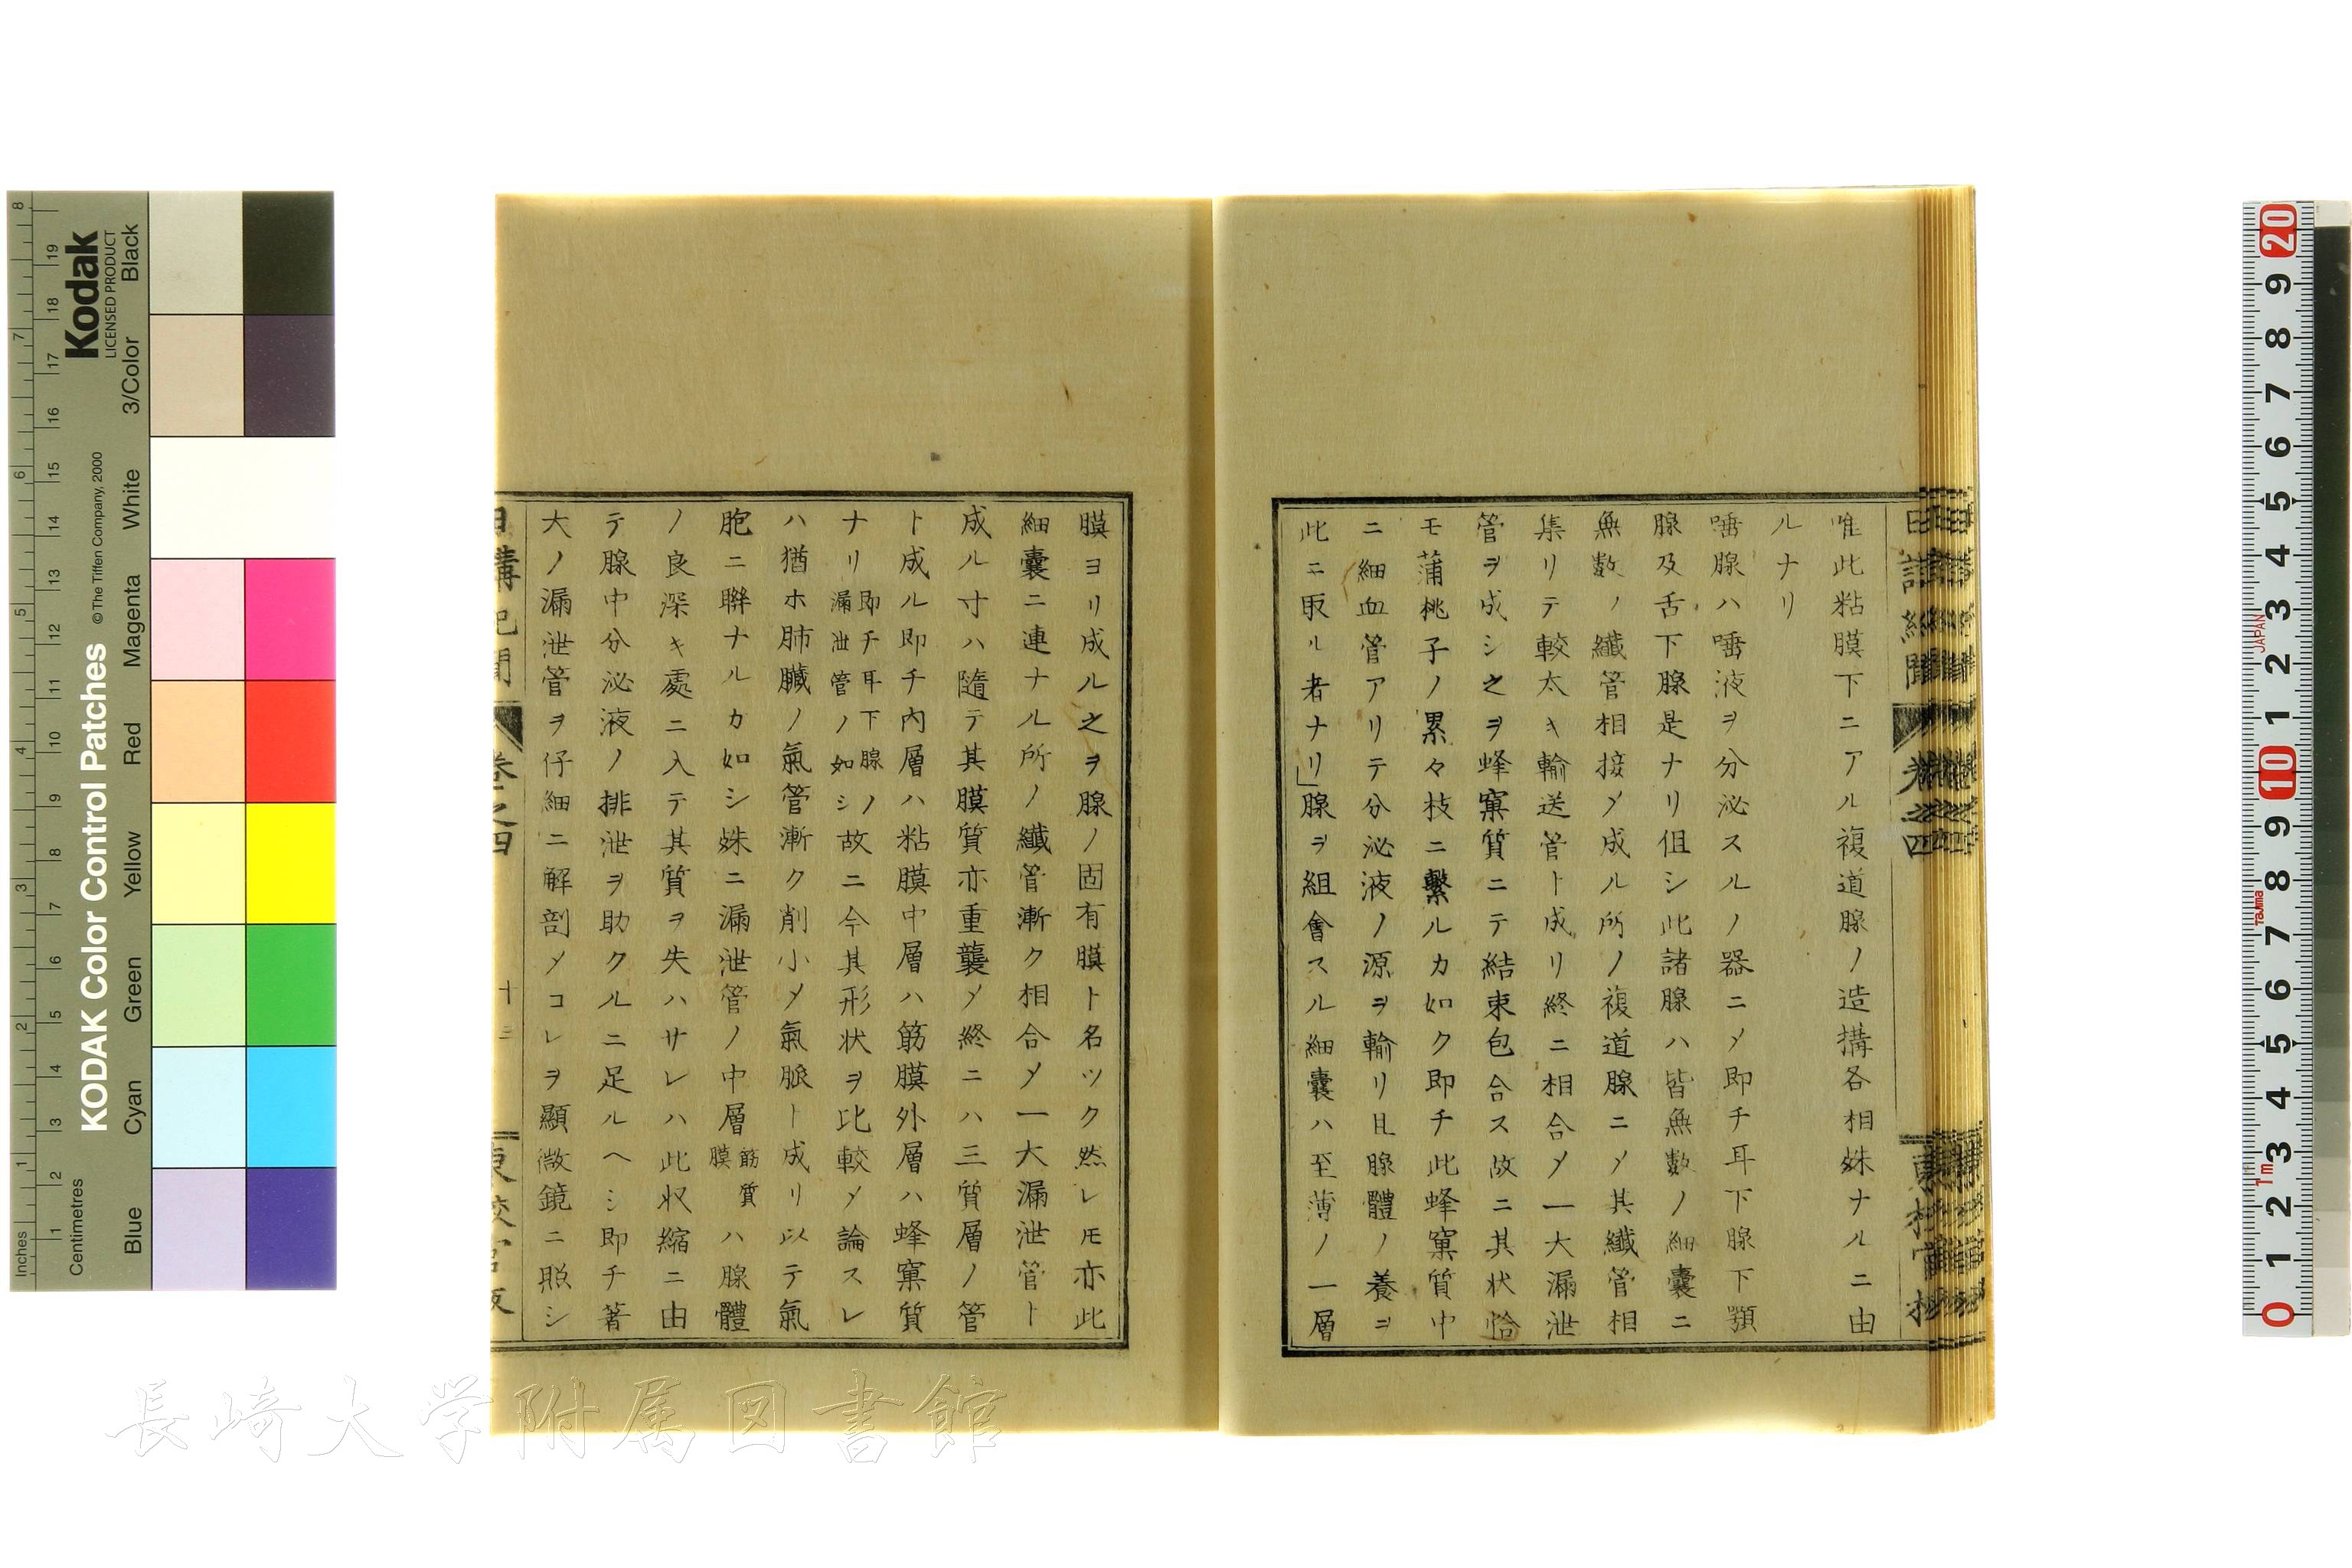 日講紀聞 卷之四
唯此粘膜下ニアル複道腺ノ造搆各相姝ナルニ由
ルナリ
唾腺ハ唾液ヲ分泌スルノ器ニメ即チ耳下腺下顎
腺及舌下腺是ナリ伹シ此諸腺ハ皆無数ノ細囊ニ
無数ノ纖管相接メ成ル所ノ複道腺ニメ其纖管相
集リテ較太キ輸送管ト成リ終ニ相合メ一大漏泄
管ヲ成シ之ヲ蜂窠質ニテ結束包合ス故ニ其状恰
モ蒲桃子ノ累々枝ニ繫ルカ如ク即チ此蜂窠質中
ニ細血管アリテ分泌液ノ源ヲ輸リ且腺體ノ養ヲ
此ニ取ル者ナリ」腺ヲ組會スル細囊ハ至薄ノ一層
膜ヨリ成ル之ヲ腺ノ固有膜ト名ツク然レ𪜈亦此
細囊ニ連ナル所ノ纖管漸ク相合メ一大漏泄管ト
成ル寸ハ隨テ其膜質亦重襲メ終ニハ三質層ノ管
ト成ル即チ内層ハ粘膜中層ハ筋膜外層ハ蜂窠質
ナリ即チ耳下腺ノ漏泄管ノ如シ故ニ今其形状ヲ比較メ論スレ
ハ猶ホ肺臓ノ氣管漸ク削小メ氣脈ト成リ以テ氣
胞ニ聯ナルカ如シ姝ニ漏泄管ノ中層筋質膜ハ腺體
ノ良深キ處ニ入テ其質ヲ失ハサレハ此収縮ニ由
テ腺中分泌液ノ排泄ヲ助クルニ足ルヘシ即チ著
大ノ漏泄管ヲ仔細ニ解剖メコレヲ顯微鏡ニ照シ
日講紀聞 卷之四 十三
長崎大学附属図書館
KODAK Color Control Patches
© The Tiffen Company, 2000
Kodak
LICENSED PRODUCT
Inches 1 2 3 4 5 6 7 8
Centimetres 1 2 3 4 5 6 7 8 9 10 11 12 13 14 15 16 17 18 19
Blue Cyan Green Yellow Red Magenta White 3/Color Black
0 1 2 3 4 5 6 7 8 9 10 1 2 3 4 5 6 7 8 9 20
1m Tajima JAPAN